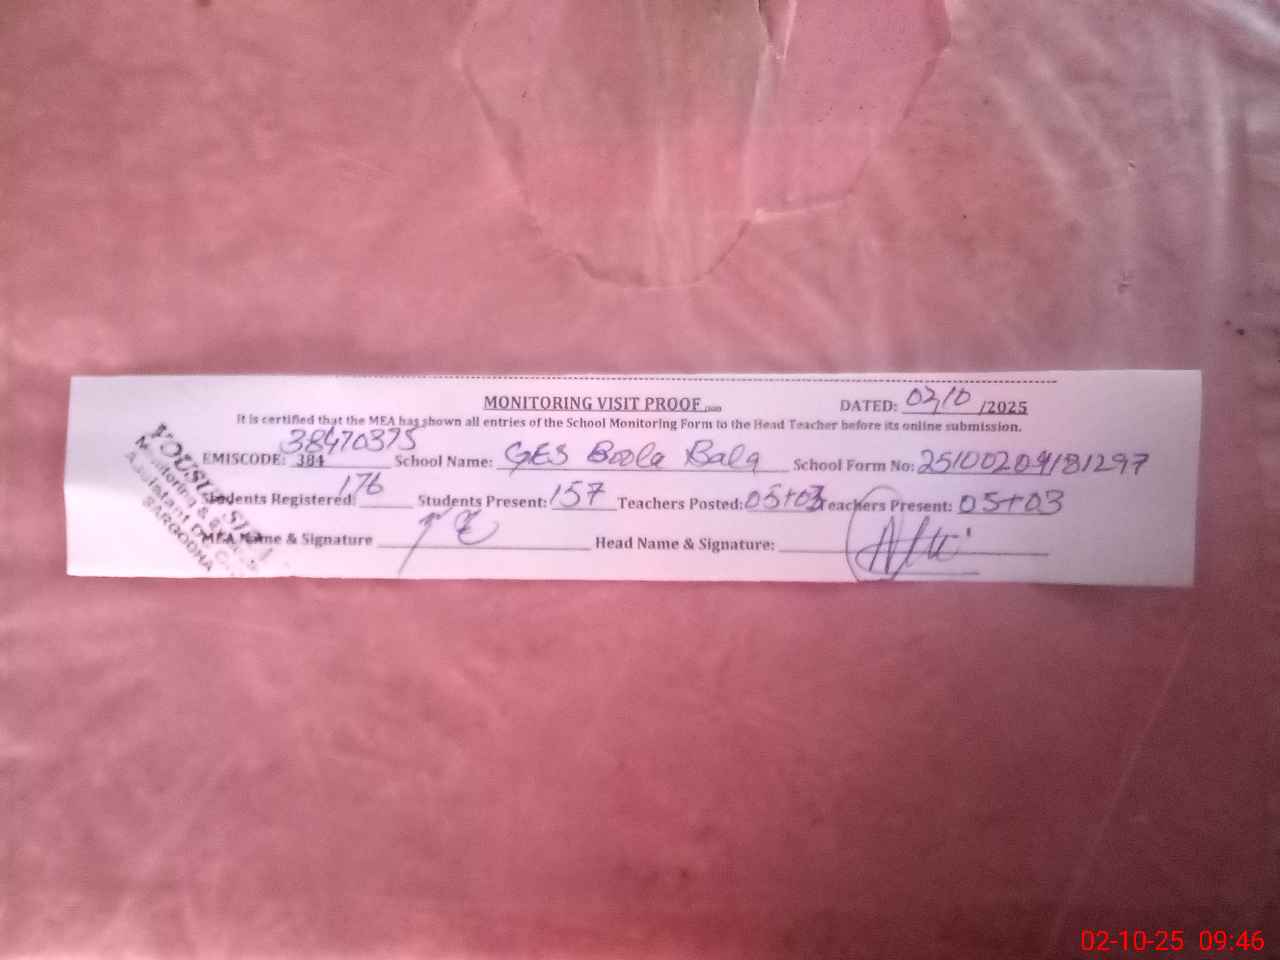 MONITORING VISIT PROOF DATED: 02/10 /2025
It is certified that the MEA has shown all entries of the School Monitoring Form to the Head Teacher before its online submission.
38470375
EMISCODE: 384 School Name: GES Boola Bala School Form No: 25100209181297
Students Registered: 176 Students Present: 157 Teachers Posted: 05+03 Teachers Present: 05+03
MEA Name & Signature Head Name & Signature:
YOUSUF
Monitoring &
Assistant
SARGODHA
02-10-25 09:46